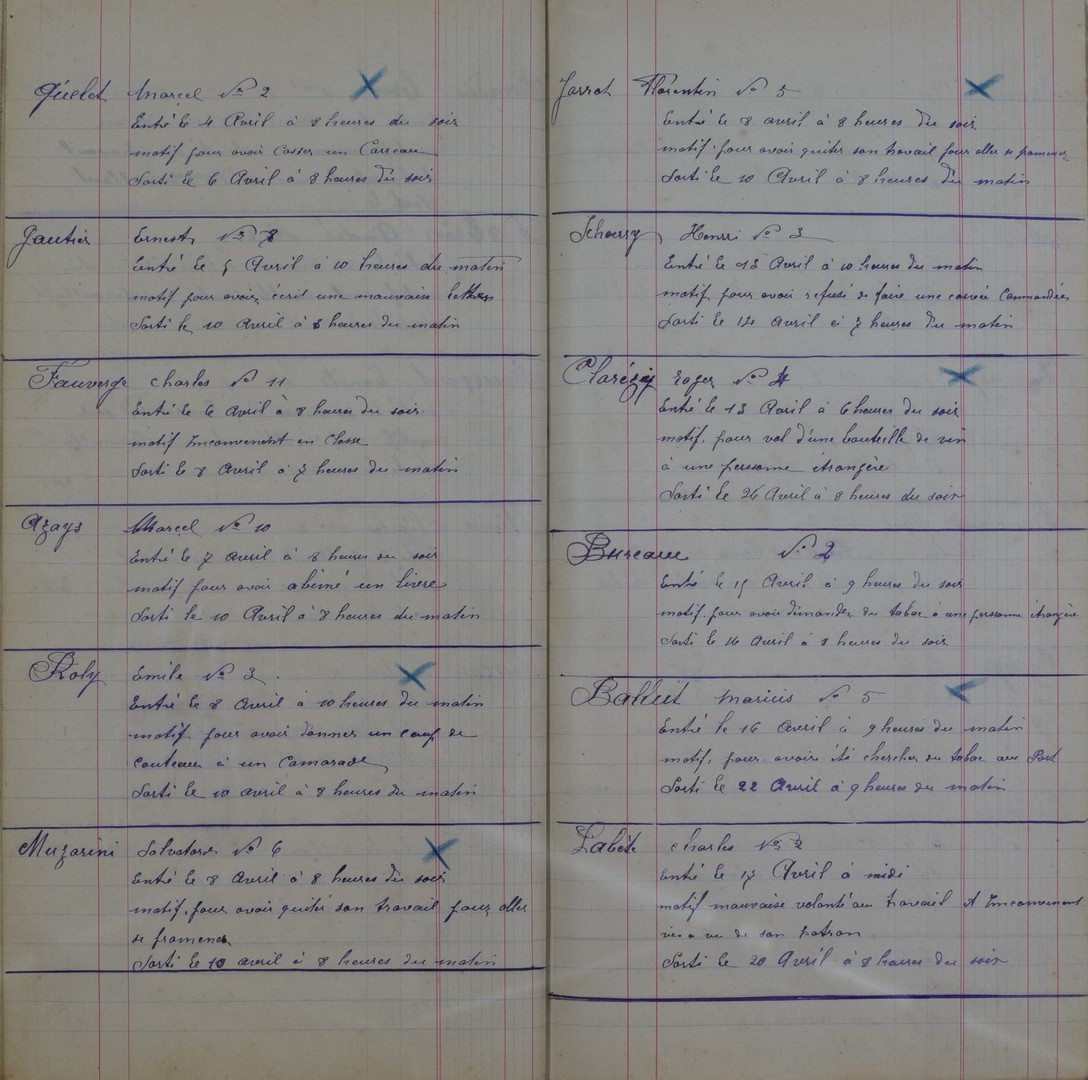 Quélet Marcel N° 2
Entré le 4 Avril à 8 heures du soir
motif pour avoir Casser un Carreau
Sorti le 6 Avril à 8 heures du soir
Gautier Ernest N° 8
Entré le 5 Avril à 10 heures du matin
motif pour avoir écrit une mauvaise lettre
Sorti le 10 Avril à 8 heures du matin
Fauverge Charles N° 11
Entré le 6 Avril à 8 heures du soir
motif Inconvenent en Classe
Sorti le 8 Avril à 7 heures du matin
Azays Marcel N° 10
Entré le 7 Avril à 8 heures du soir
motif pour avoir abîmé un livre
Sorti le 10 Avril à 8 heures du matin
Roly Emile N° 3
Entré le 8 Avril à 10 heures du matin
motif pour avoir donner un coup de
couteau à un Camarade
Sorti le 10 avril à 8 heures du matin
Muzarini Salvatore N° 6
Entré le 8 Avril à 8 heures du soir
motif, pour avoir quiter son travail pour aller
se promener
Sorti le 10 avril à 8 heures du matin
Jarrot Florentin N° 5
Entré le 8 avril à 8 heures du soir
motif pour avoir quiter son travail pour aller se promener
Sorti le 10 Avril à 8 heures du matin
Henri N° 3
Entré le 13 Avril à 10 heures du matin
motif pour avoir refusé de faire une corvée Commandée
Sorti le 14 Avril à 7 heures du matin
Roger N° 4
Entré le 13 Avril à 6 heures du soir
motif, pour vol d'une bouteille de vin
à une personne étrangère
Sorti le 26 Avril à 8 heures du soir
Bureau N° 2
Entré le 15 Avril à 9 heures du soir
motif, pour avoir demander du tabac à une personne étrangère
Sorti le 16 Avril à 8 heures du soir
Ballut Marius N° 5
Entré le 16 Avril à 9 heures du matin
motif, pour avoir été chercher du tabac au Port
Sorti le 22 Avril à 9 heures du matin
Labète Charles N° 2
Entré le 17 Avril à midi
motif mauvaise volonté au travail et Inconvenent
vis a vis de son patron
Sorti le 20 Avril à 8 heures du soir